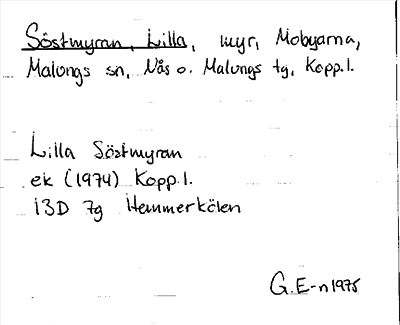 Söstmyran, Lilla, myr, Mobyarna,
Malungs sn, Nås o. Malungs tg, Kopp.l.
Lilla Söstmyran
ek (1974) Kopp.l.
13D 7g Hemmerkölen
G.E-n 1975